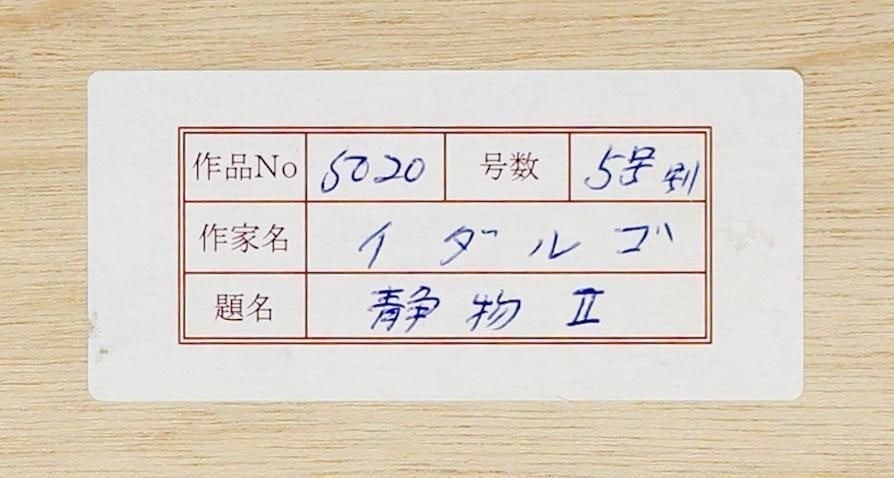 作品No 5020 号数 5号 別
作家名 イダルゴ
題名 静物 II